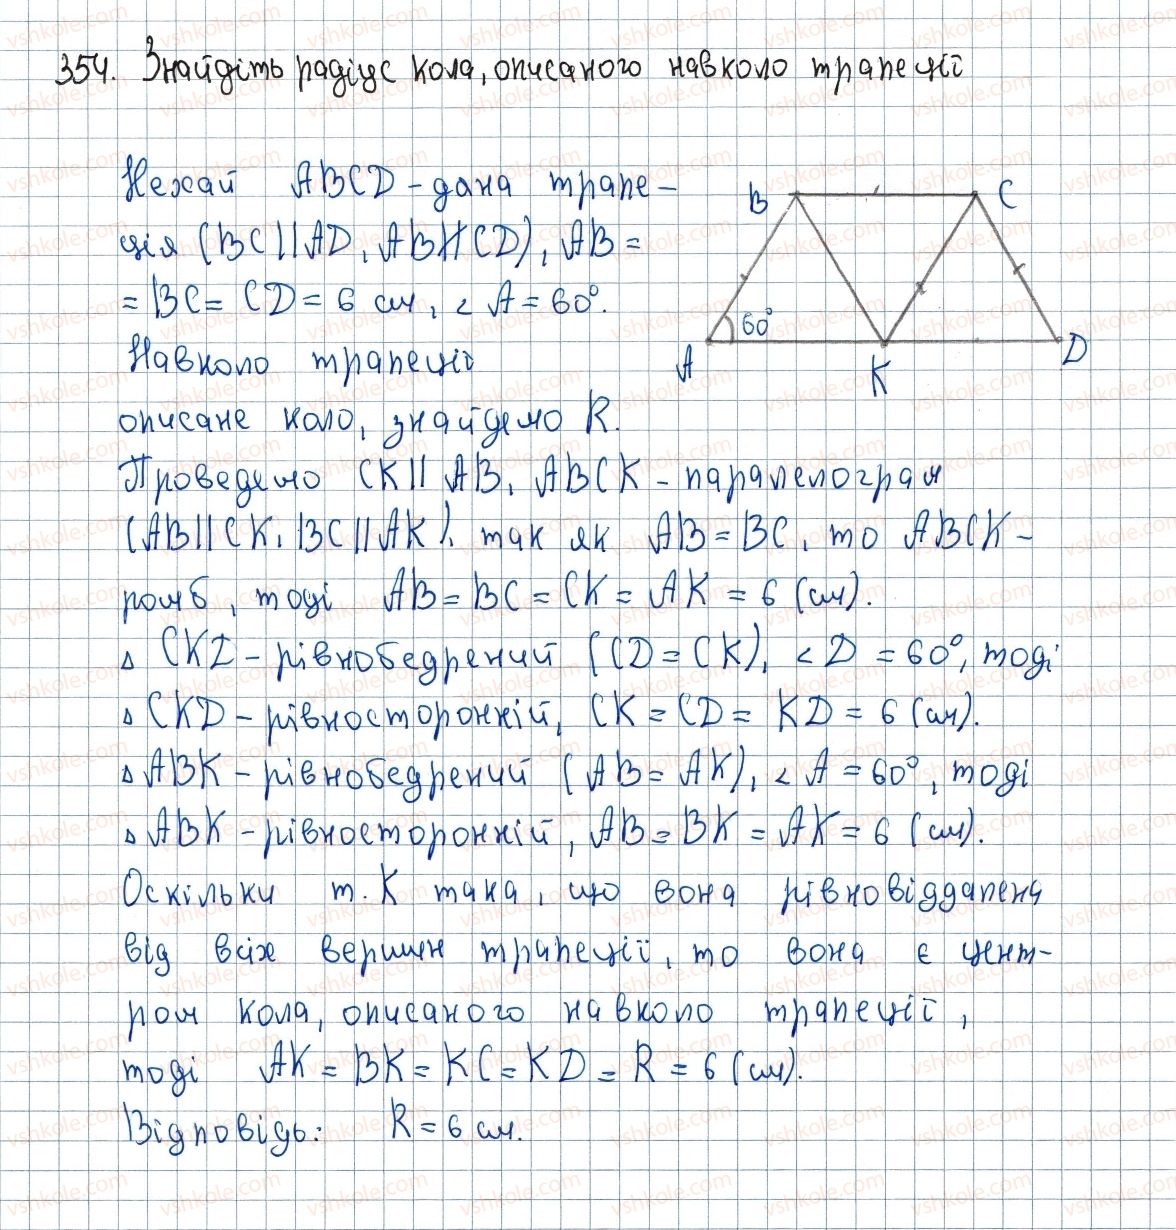 354. Знайдіть радіус кола, описаного навколо трапеції
Нехай ABCD - дана трапе-
ція (BC || AD, AB ∦ CD), AB =
= BC = CD = 6 см, ∠A = 60°.
Навколо трапеції
описане коло, знайдемо R.
Проведемо CK || AB, ABCK - паралелограм
(AB || CK, BC || AK), так як AB = BC, то ABCK -
ромб, тоді AB = BC = CK = AK = 6 (см).
Δ CKD - рівнобедрений (CD = CK), ∠D = 60°, тоді
Δ CKD - рівносторонній, CK = CD = KD = 6 (см).
Δ ABK - рівнобедрений (AB = AK), ∠A = 60°, тоді
Δ ABK - рівносторонній, AB = BK = AK = 6 (см).
Оскільки т. K така, що вона рівновіддалена
від всіх вершин трапеції, то вона є цент-
ром кола, описаного навколо трапеції,
тоді AK = BK = KC = KD = R = 6 (см).
Відповідь: R = 6 см.
B
C
60°
A
K
D
vshkole.com